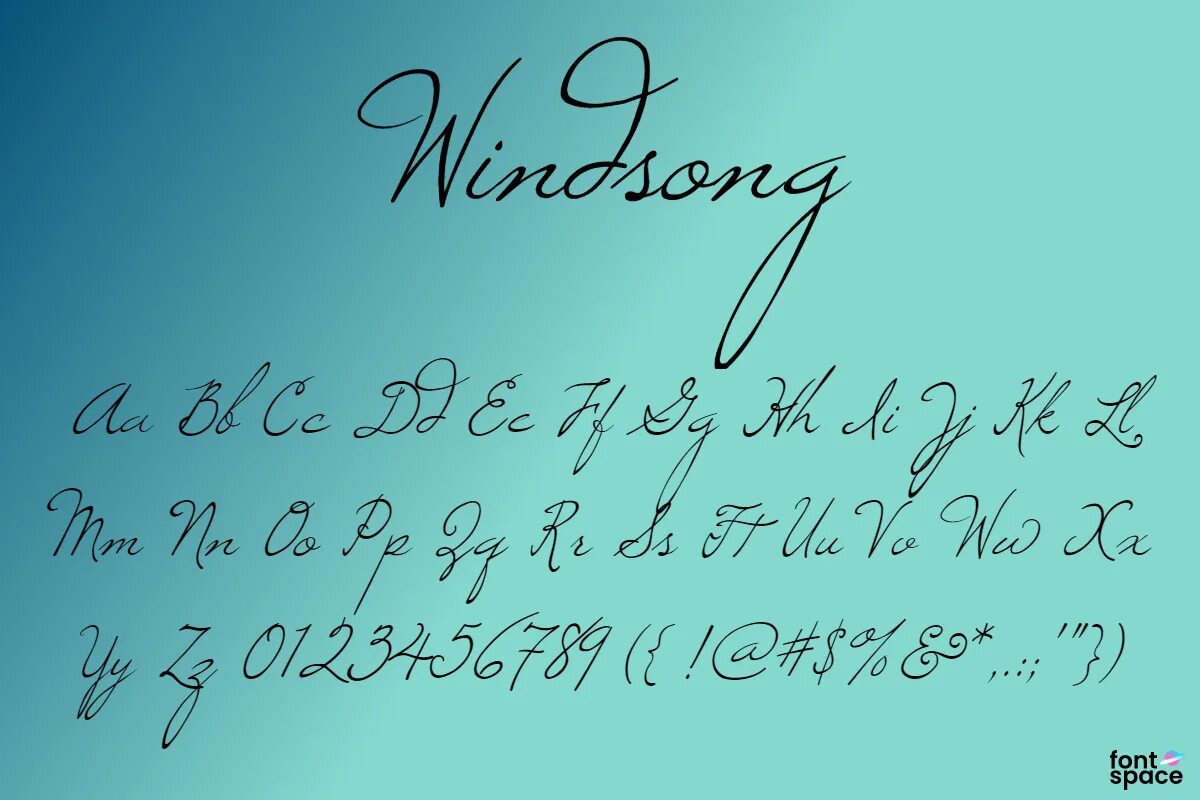 Windsong
Aa Bb Cc Dd Ee Ff Gg Hh Ii Jj Kk Ll
Mm Nn Oo Pp Qq Rr Ss Tt Uu Vv Ww Xx
Yy Zz 0123456789 ({ !@#$%&*,.:; '"})
font
space